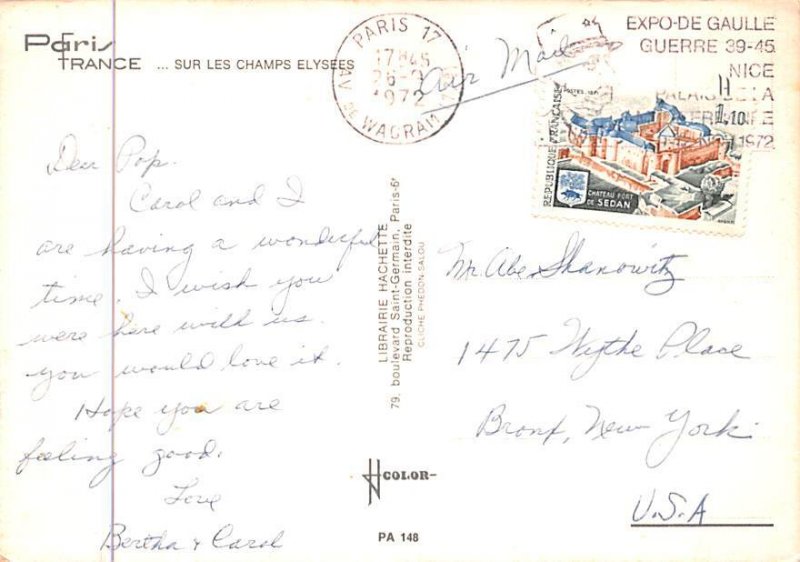 Paris
FRANCE ... SUR LES CHAMPS ELYSEES
PARIS 17
17H45
1972
AV. DE WAGRAM
Air Mail
EXPO-DE GAULLE
GUERRE 39-45
NICE
1972
POSTES
1.10
REPUBLIQUE FRANÇAISE
CHATEAU FORT
DE SEDAN
Dear Pop.
Carol and I
are having a wonderful
time. I wish you
were here with us.
you would love it.
Hope you are
feeling good.
Love
Bertha & Carol
LIBRAIRIE HACHETTE
79, boulevard Saint-Germain, Paris-6e
Reproduction interdite
CLICHÉ PHEDON-SALOU
Mr. Abe Shanowitz
1475 Wythe Place
Bronx, New York
U.S.A
COLOR
PA 148